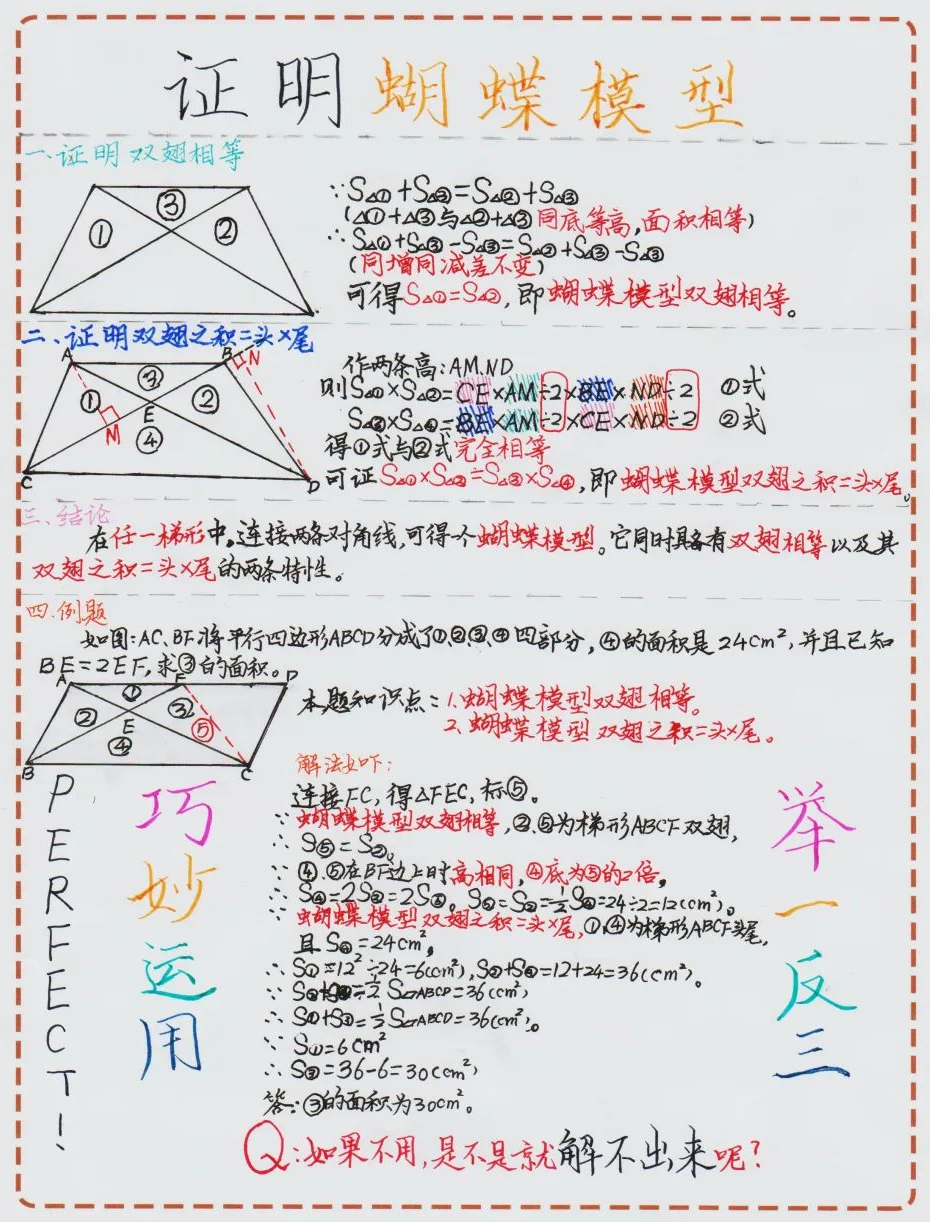 证明蝴蝶模型
一、证明双翅相等
① ③ ②
∵S△①+S△③=S△②+S△③
(△①+△③与△②+△③同底等高,面积相等)
∴S△①+S△③-S△③=S△②+S△③-S△③
(同增同减差不变)
可得S△①=S△②,即蝴蝶模型双翅相等。
二、证明双翅之积=头×尾
A B N
① ③ ②
E
M ④
C D
作两条高:AM.ND
则S△①×S△②=CE×AM÷2×BE×ND÷2 ①式
S△③×S△④=BE×AM÷2×CE×ND÷2 ②式
得①式与②式完全相等
可证S△①×S△②=S△③×S△④,即蝴蝶模型双翅之积=头×尾。
三、结论
在任一梯形中,连接两条对角线,可得个蝴蝶模型。它同时具备有双翅相等以及其
双翅之积=头×尾的两条特性。
四.例题
如图:AC、BF将平行四边形ABCD分成了①、②、③、④四部分,④的面积是24cm²,并且已知
BE=2EF,求③的面积。
A F D
① ② ③ ⑤
E
④
B C
本题知识点:1.蝴蝶模型双翅相等。
2.蝴蝶模型双翅之积=头×尾。
解法如下:
连接FC,得△FEC,标⑤。
∵蝴蝶模型双翅相等,②、⑤为梯形ABCF双翅,
∴S⑤=S②。
∵④、⑤在BF边上时高相同,④底为⑤的2倍,
∴S④=2S⑤=2S②。S⑤=S②=½S④=24÷2=12(cm²)。
∵蝴蝶模型双翅之积=头×尾,①、④为梯形ABCF头尾,
且S④=24cm²,
∴S①=12²÷24=6(cm²),S②+S④=12+24=36(cm²)。
∵S②+S④=½S▱ABCD=36(cm²)
∴S①+S③=½S▱ABCD=36(cm²)。
∵S①=6cm²
∴S③=36-6=30(cm²)
答:③的面积为30cm²。
PERFECT!
巧妙运用
举一反三
Q:如果不用,是不是就解不出来呢?